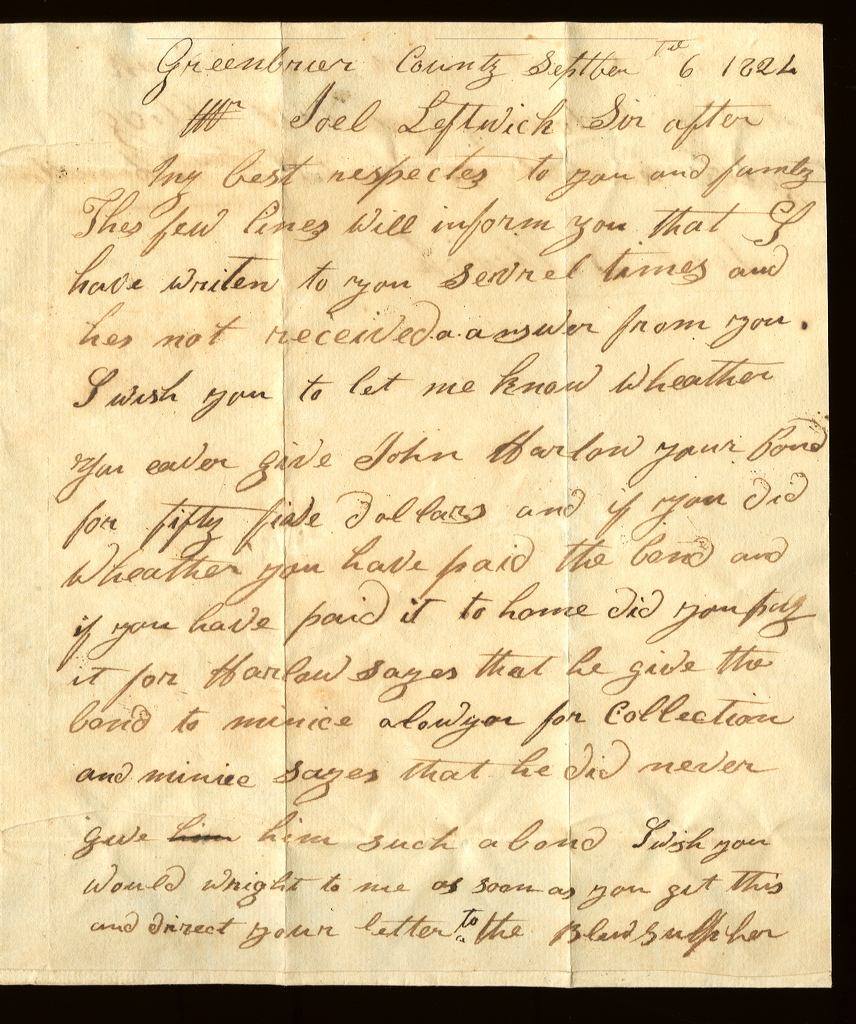 Greenbrier County Septber the 6 1824
Mr Joel Leftwich Sir after
my best respectes to you and family
Thes few lines will inform you that I
have writen to you sevrel times and
hes not received a answer from you.
I wish you to let me know wheather
you eaver give John Harlow your bond
for fifty five dollars and if you did
wheather you have paid the bond and
if you have paid it to home did you pay
it for Harlow sayes that he give the
bond to minice a lowyor for collection
and minice sayes that he did never
give him him such a bond I wish you
would wright to me as soon as you get this
and direct your letter to the Blew sulpher